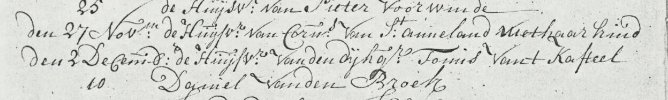 25 de Huijsvr. van Pieter Voorwinde
den 27 Novem de Huijsvr. van Corns. van St. anneland met haar kind
den 2 Decemb: de Huijsvr. van den dijkgr. Tonis van't Kasteel
10 Daniel vanden Broek